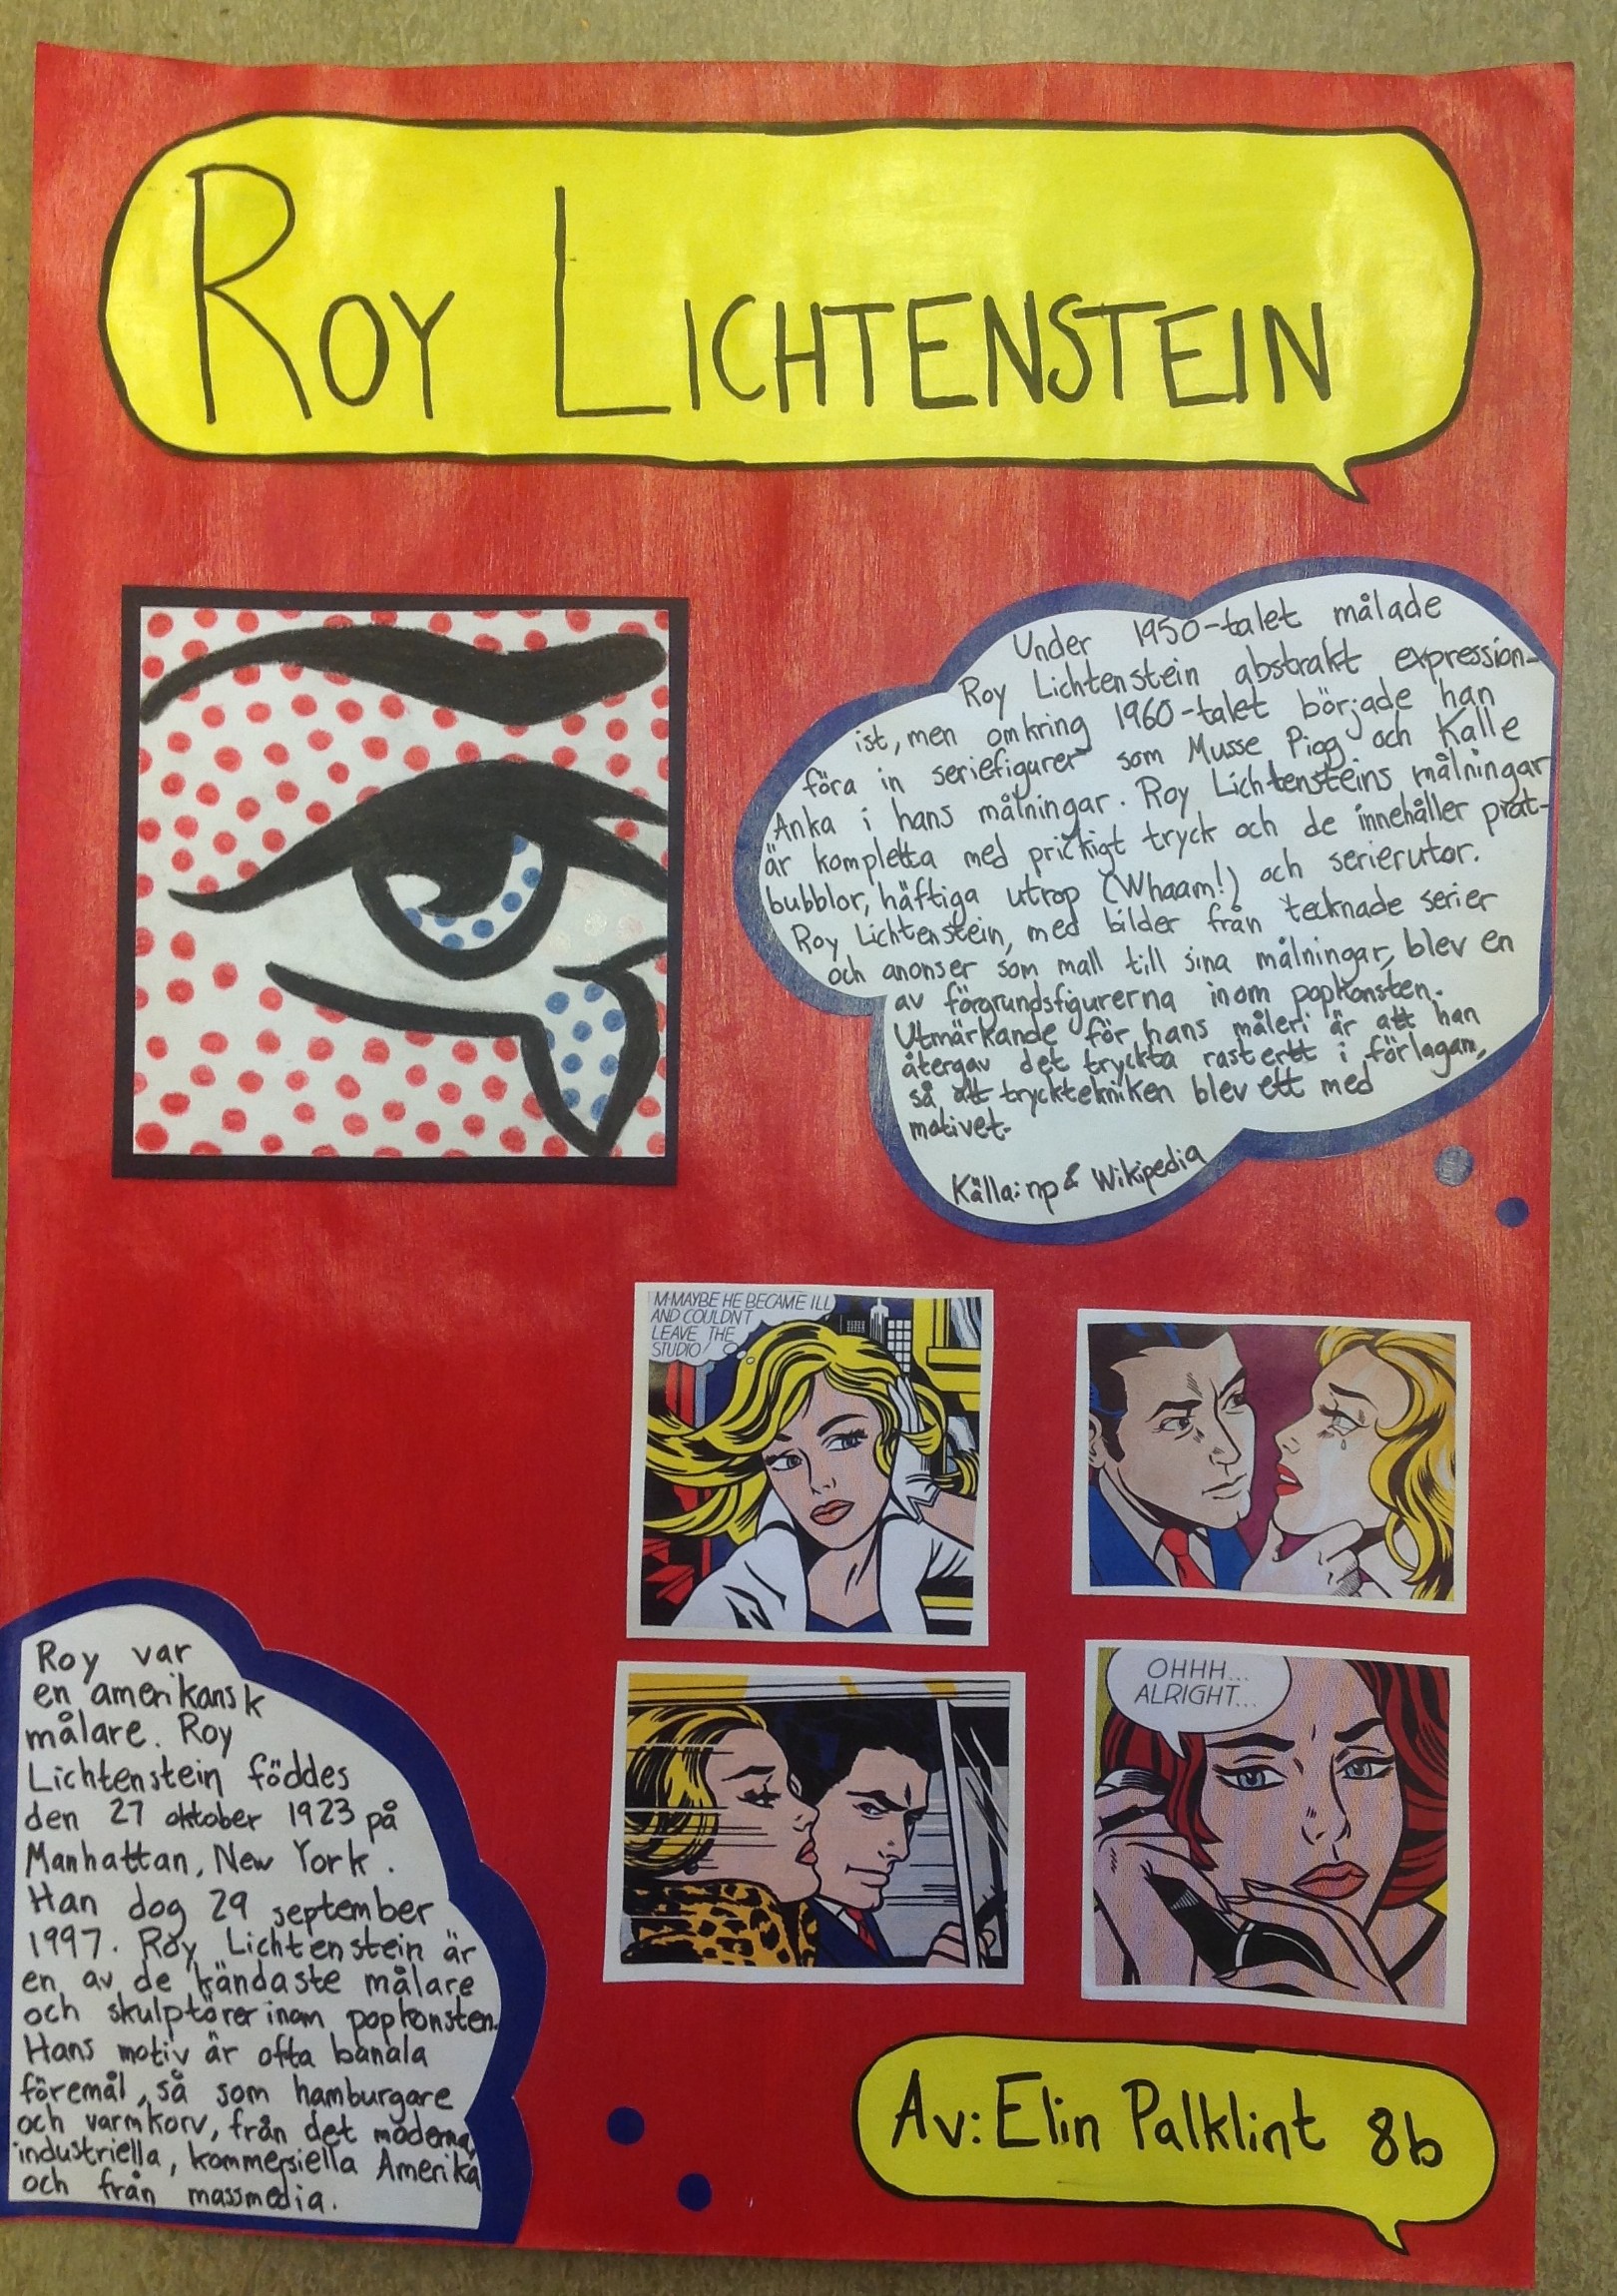 ROY LICHTENSTEIN
Under 1950-talet målade
Roy Lichtenstein abstrakt expression-
ist, men omkring 1960-talet började han
föra in seriefigurer som Musse Pigg och Kalle
Anka i hans målningar. Roy Lichtensteins målningar
är kompletta med prickigt tryck och de innehåller prat-
bubblor, häftiga utrop (Whaam!) och serierutor.
Roy Lichtenstein, med bilder från tecknade serier
och anonser som mall till sina målningar, blev en
av förgrundsfigurerna inom popkonsten.
Utmärkande för hans måleri är att han
återgav det tryckta rastertt i förlagan,
så att trycktekniken blev ett med
motivet.
Källa: np & Wikipedia
M-MAYBE HE BECAME ILL
AND COULDN'T
LEAVE THE
STUDIO!
OHHH...
ALRIGHT...
Roy var
en amerikansk
målare. Roy
Lichtenstein föddes
den 27 oktober 1923 på
Manhattan, New York.
Han dog 29 september
1997. Roy Lichtenstein är
en av de kändaste målare
och skulptörer inom popkonsten.
Hans motiv är ofta banala
föremål, så som hamburgare
och varmkorv, från det moderna,
industriella, kommersiella Amerika
och från massmedia.
Av: Elin Palklint 8b